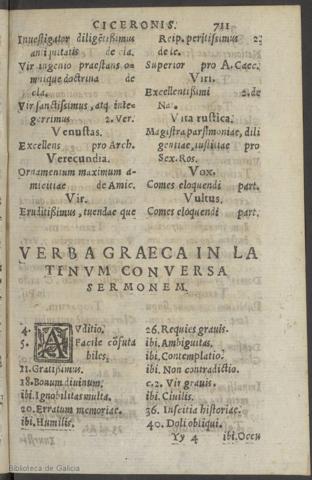 CICERONIS. 711
Inuestigator diligẽtissimus
antiquitatis de cla.
Vir ingenio praestans o-
mnique doctrina de
cla.
Vir sanctissimus, atq. inte-
gerrimus 2. Ver.
Venustas.
Excellens pro Arch.
Verecundia.
Ornamentum maximum a-
micitiae de Amic.
Vir.
Eruditissimus, tuendae que
Reip. peritissimus 2.
de le.
Superior pro A. Caec.
Viri.
Excellentissimi 2. de
Na.
Vita rustica.
Magistra parsimoniae, dili
gentiae, iustitiae pro
Sex. Ros.
Vox.
Comes eloquendi part.
Vultus.
Comes eloquendi part.
VERBA GRAECA IN LA
TINVM CONVERSA
SERMONEM.
4. AVditio.
5. Facile cõfuta
biles.
11. Gratissimus.
18. Bonum diuinum.
ibi. Ignobilitas multa.
20. Erratum memoriae.
ibi. Humilis.
26. Requies grauis.
ibi. Ambiguitas.
ibi. Contemplatio.
ibi. Non contradictio.
c. 2. Vir grauis.
ibi. Ciuilis.
36. Inscitia historiae.
40. Doli obliqui.
Yy 4 ibi. Occu
Biblioteca de Galicia